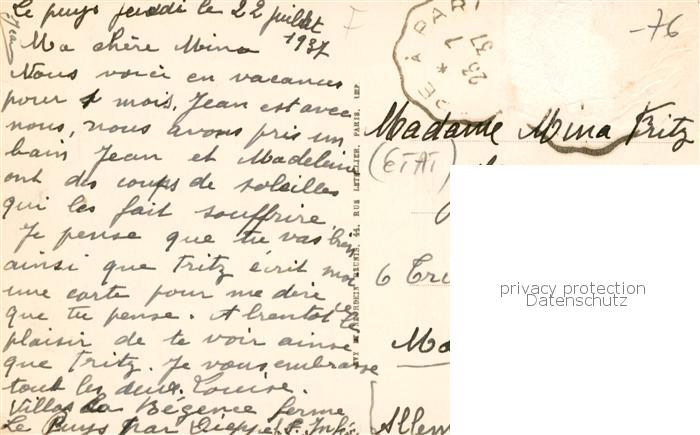 Le puys jeudi le 22 juillet
1937
Ma chère Mina
Nous voici en vacances
pour 1 mois. Jean est avec
nous, nous avons pris un
bain Jean et Madeleine
ont des coups de soleilles
qui les fait souffrire,
Je pense que tu vas bien
ainsi que Fritz écrit moi
une carte pour me dire
que tu pense. A bientot le
plaisir de te voir ainsi
que Fritz. Je vous embrasse
tout les deux. Louise.
Villa La Régence ferme
Le Puys par Dieppe S. Infre
-76
23 7
37
Madame Mina Fritz
(ETAT)
6
Ma
Allem
44, RUE LETELLIER, PARIS, IMP
privacy protection
Datenschutz